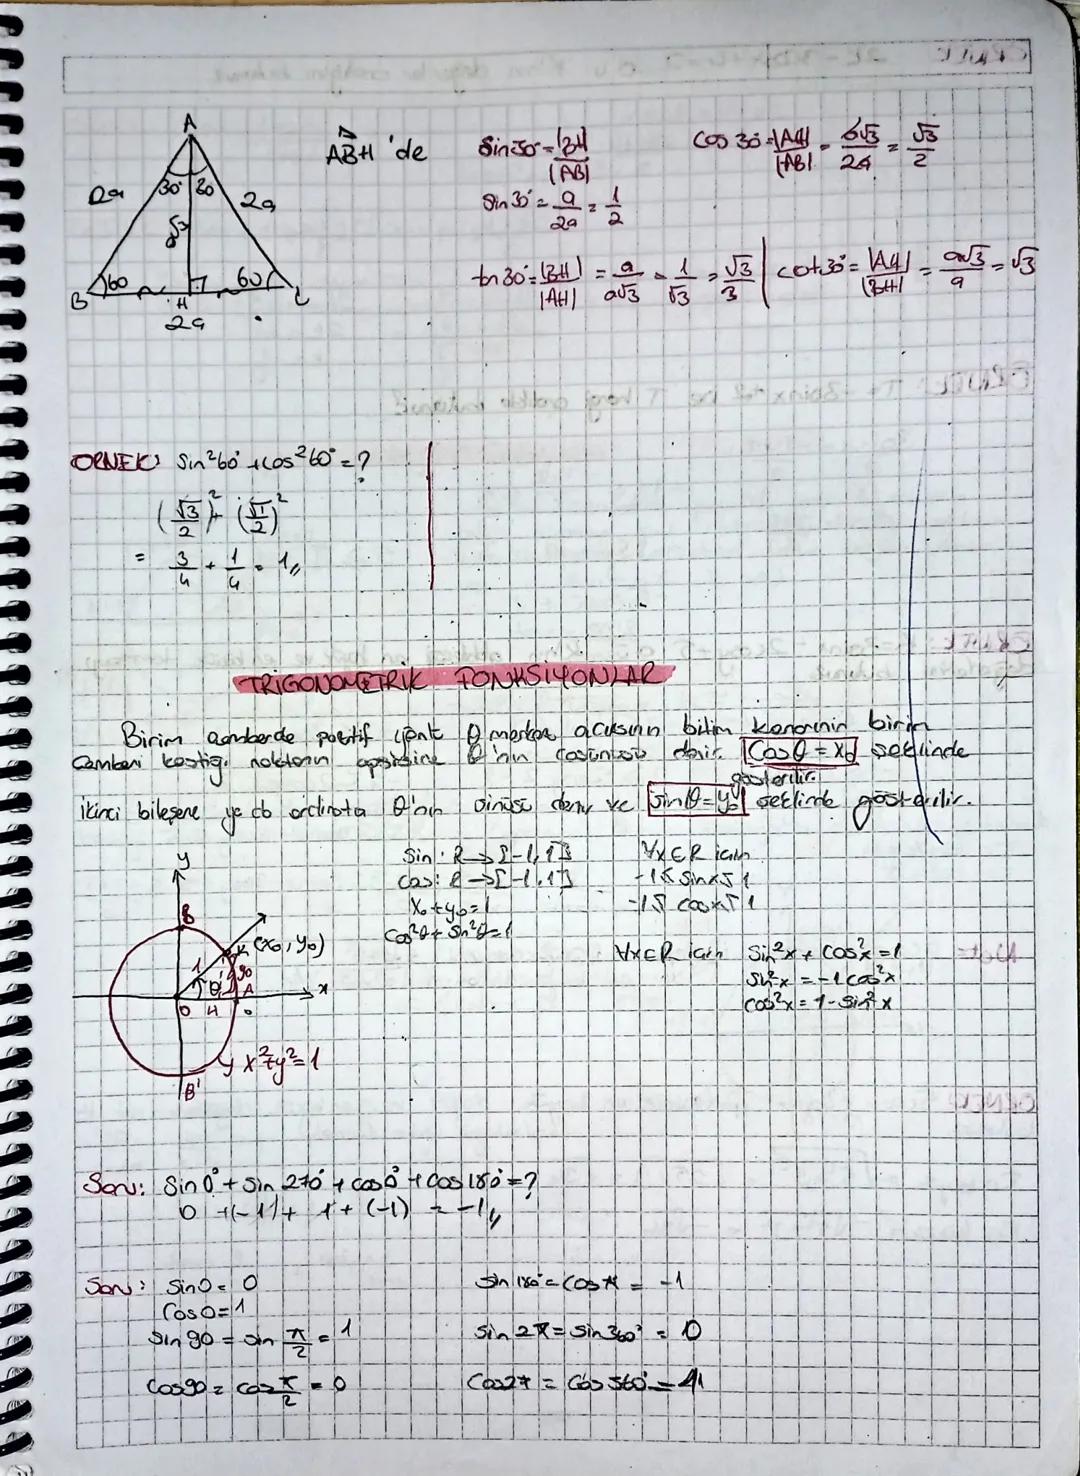 A
2a
30° 30
2a
a√3
B
60
H
60
C
2a
ABH 'de
sin30°=|BH|/|AB|
sin 30°=a/2a=1/2
cos 30=|AH|/|AB|=a√3/2a=√3/2
tan 30°=|BH|/|AH|=a/a√3=1/√3=√3/3
cot30°=|AH|/|BH|=a√3/a=√3
ÖRNEK: sin²60°+cos²60°=?
(√3/2)²+(√1/2)²
= 3/4 + 1/4 = 1,,
TRİGONOMETRİK FONKSİYONLAR
Birim çemberde pozitif yönlü θ merkez açısının bitim kenarının birim
çemberi kestiği noktanın apsisine θ'nın cosinüsü denir. Cosθ=x₀ şeklinde
gösterilir.
ikinci bileşene ya da ordinata θ'nın sinüsü denir ve sinθ=y₀ şeklinde gösterilir.
sin: R→[-1,1]
cos: R→[-1,1]
x₀+y₀=1
cos²θ+sin²θ=1
∀x∈R için
-1≤sinx≤1
-1≤cosx≤1
∀x∈R için sin²x+cos²x=1
sin²x=-1cos²x
cos²x=1-sin²x
y
B
K(x₀,y₀)
1
y₀
θ
A
x
O H
B'
x²+y²=1
Soru: Sin0°+sin 270°+cos0°+cos180°=?
0+(-1)+1+(-1)=-1,,
Soru: sin0=0
Cos0=1
sin90=sin π/2=1
cos90=cos π/2=0
sin180°=cosπ=-1
sin 2π=sin360°=0
Cos2π=Cos360°=1